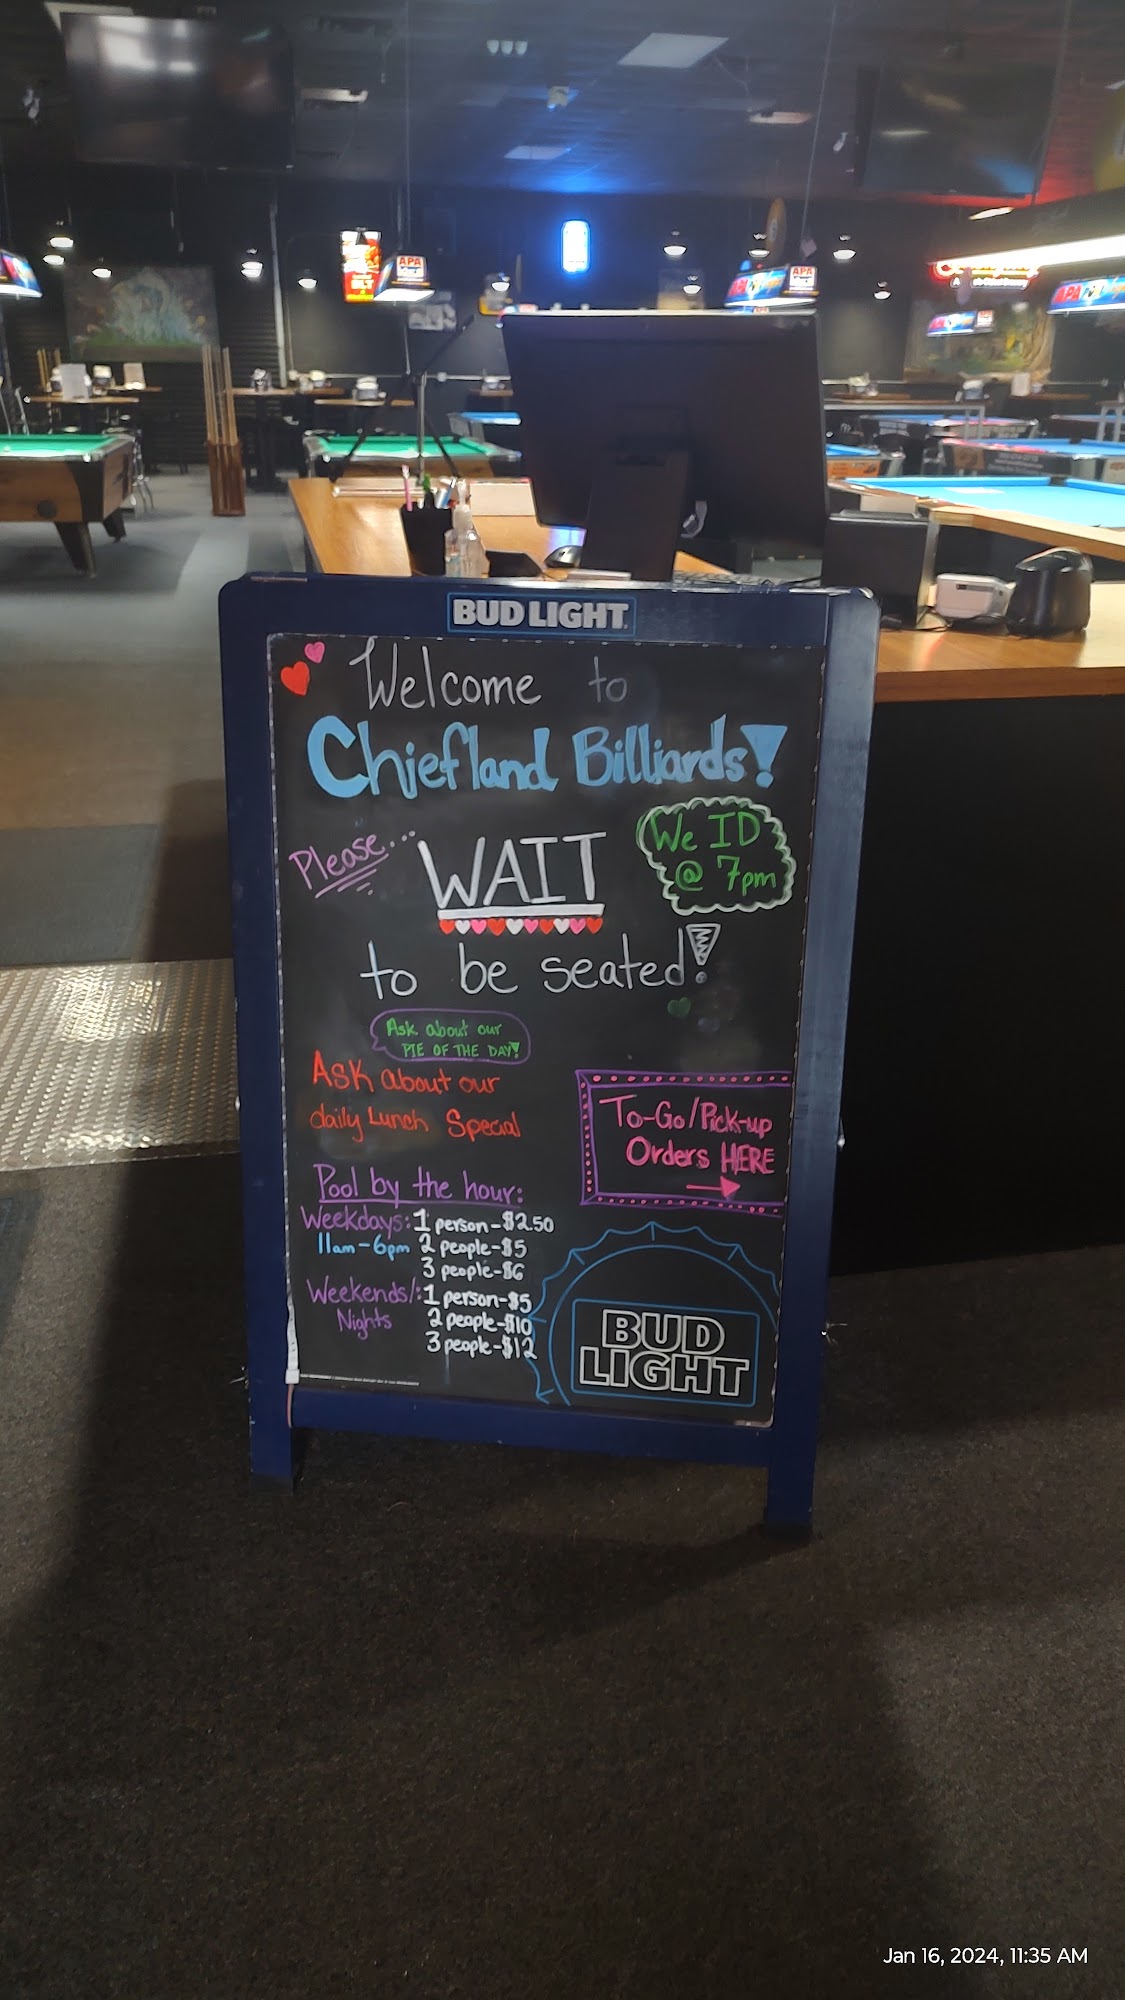 APA
APA
APA
BUD LIGHT
Welcome to
Chiefland Billiards!
Please...
WAIT
We ID
@ 7pm
to be seated!
Ask about our
PIE OF THE DAY!
Ask about our
daily Lunch Special
To-Go/Pick-up
Orders HERE
Pool by the hour:
Weekdays: 1 person-$2.50
11am-6pm 2 people-$5
3 people-$6
Weekends/: 1 person-$5
Nights 2 people-$10
3 people-$12
BUD
LIGHT
Jan 16, 2024, 11:35 AM